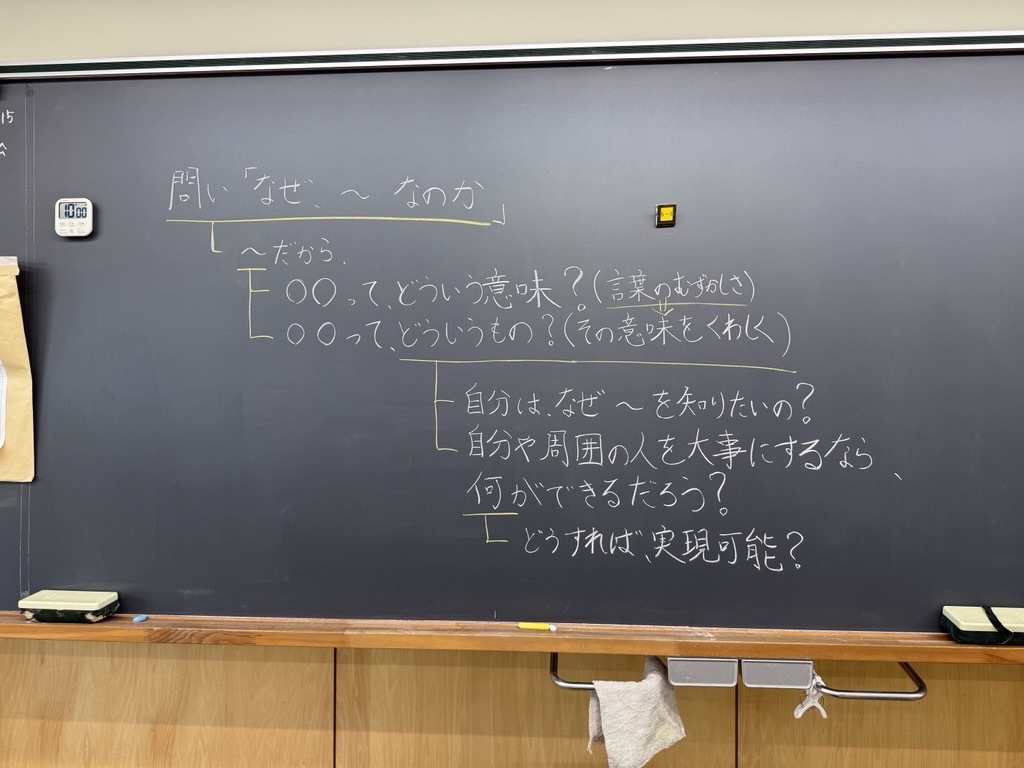 15
問い「なぜ、～なのか」
～だから、
○○って、どういう意味？(言葉のむずかしさ)
○○って、どういうもの？(その意味をくわしく)
自分は、なぜ～を知りたいの？
自分や周囲の人を大事にするなら、
何ができるだろう？
どうすれば、実現可能？
10 00